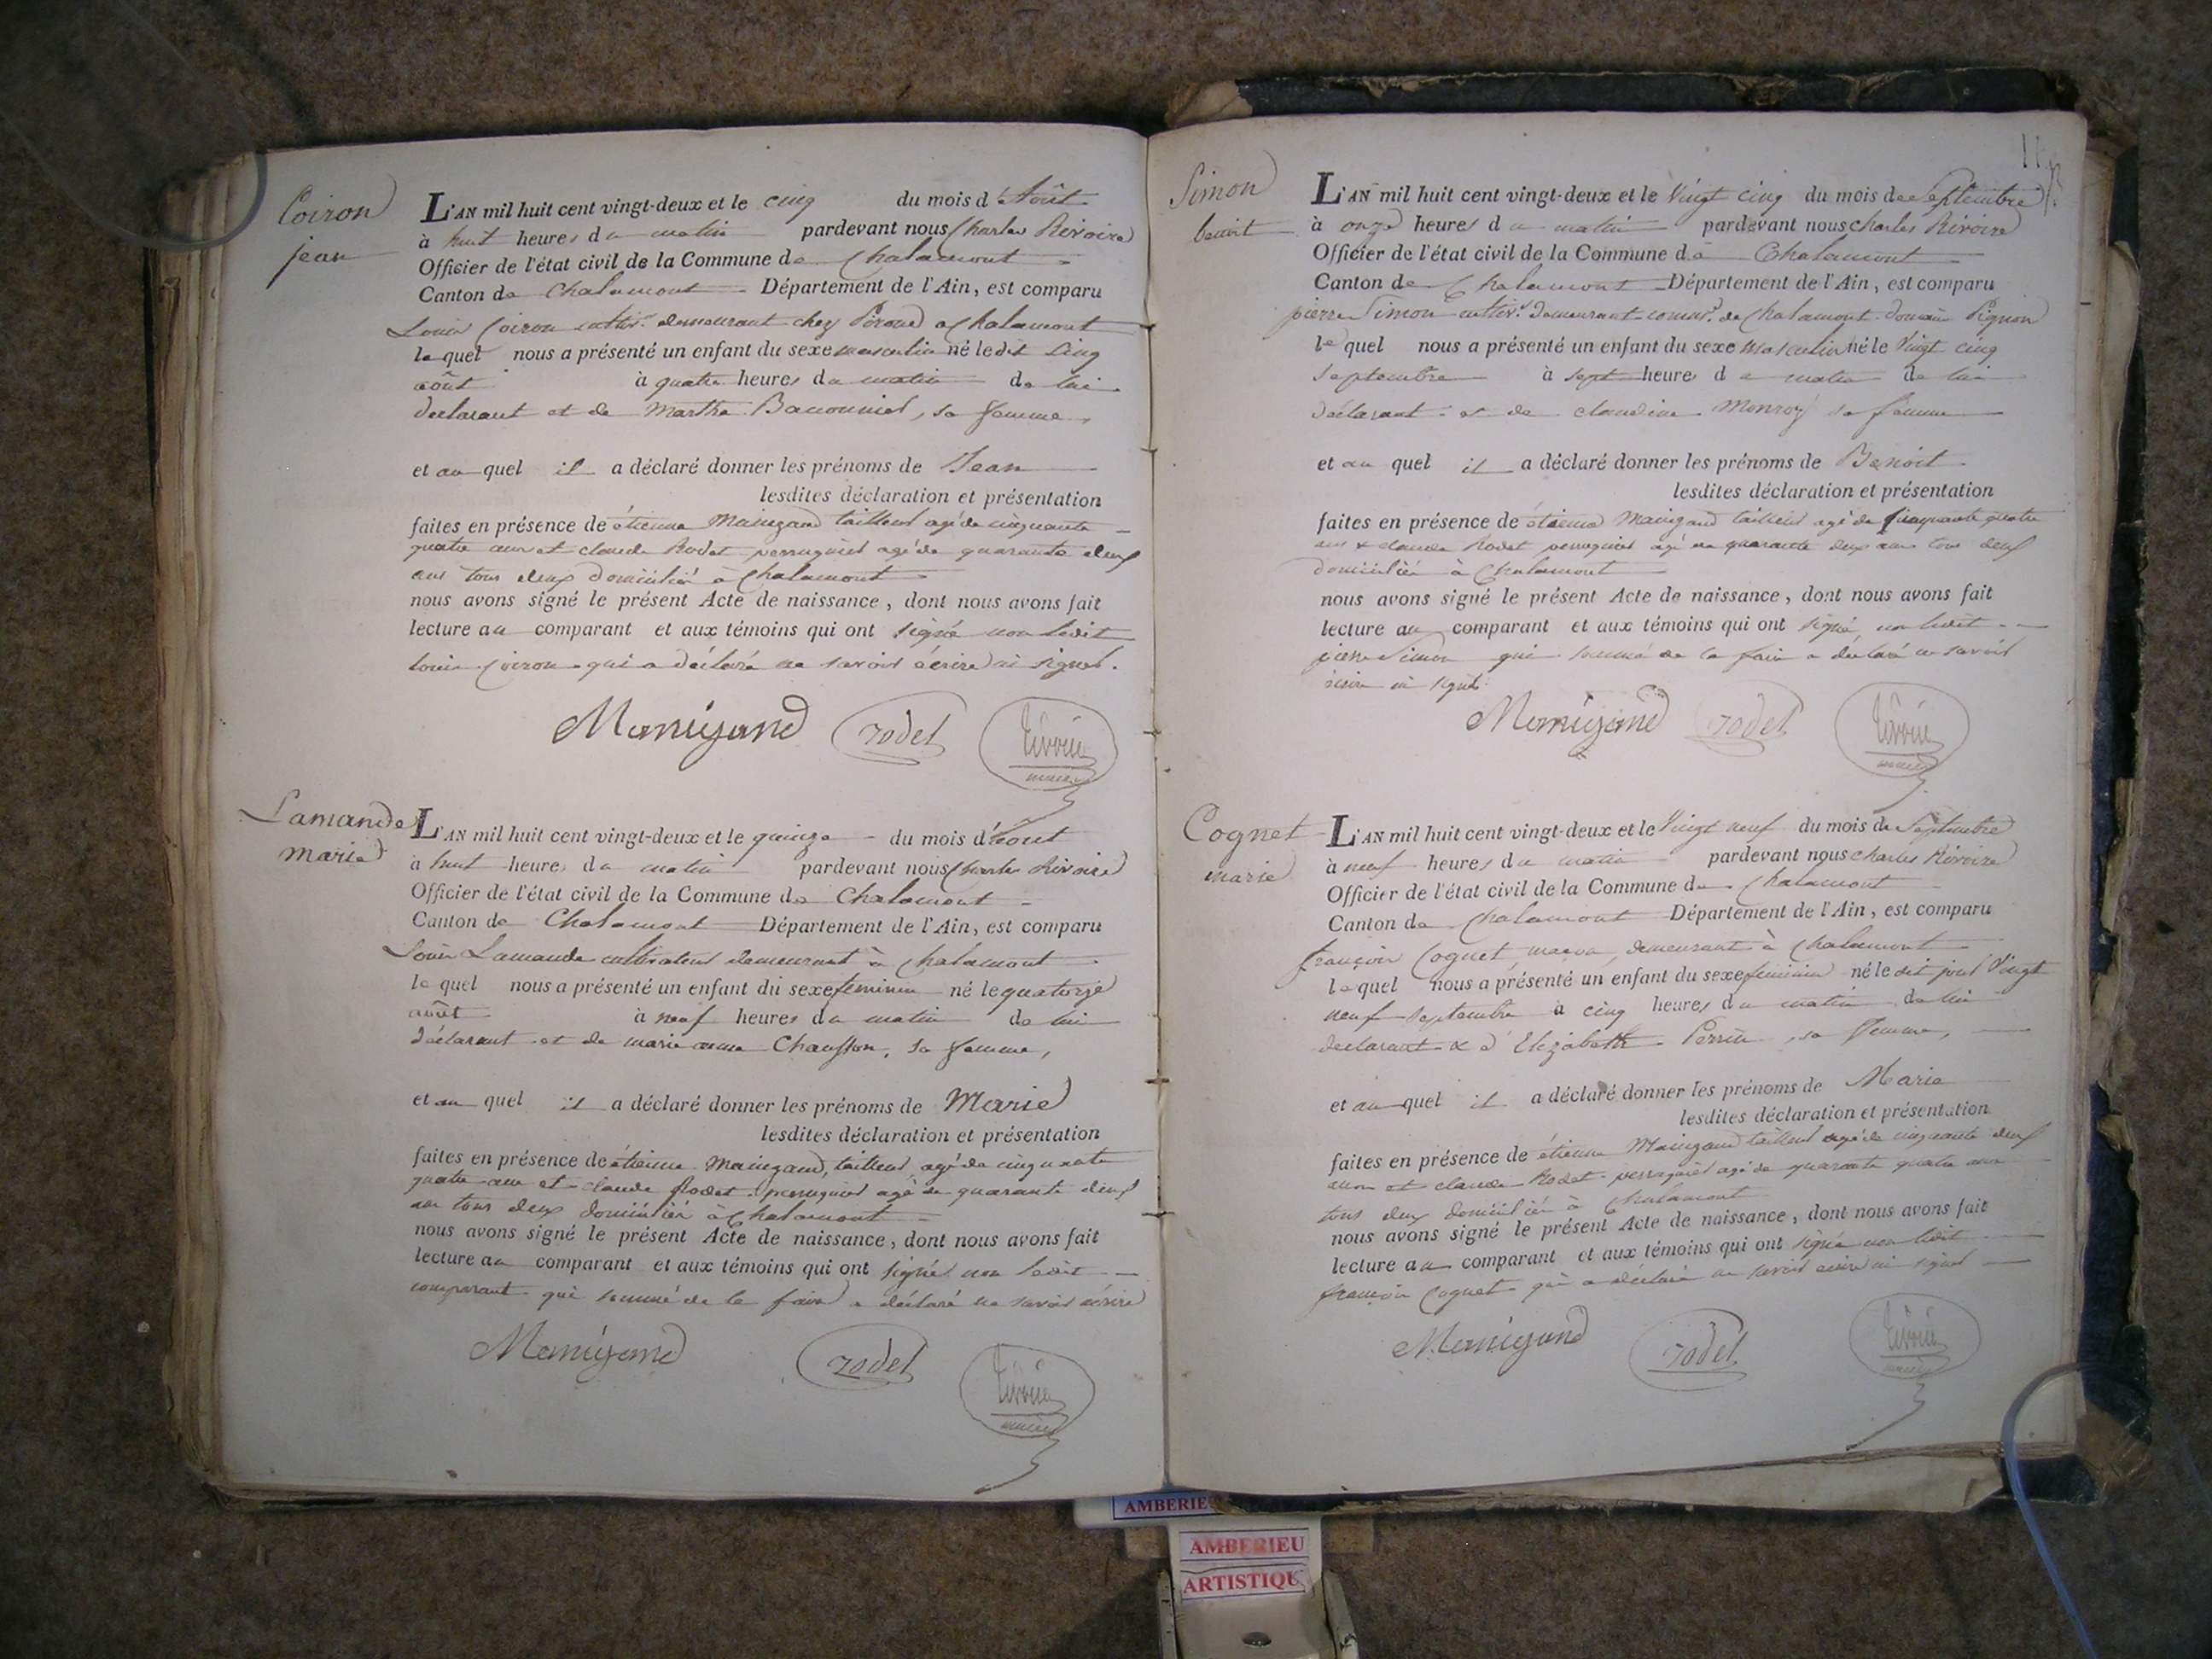 Coiron
jean
L'AN mil huit cent vingt-deux et le cinq du mois d'Août
à huit heures du matin pardevant nous Charles Rivoire
Officier de l'état civil de la Commune de Chalamont
Canton de Chalamont Département de l'Ain, est comparu
Louis Coiron cultiv.r demeurant chez Piroud à Chalamont
le quel nous a présenté un enfant du sexe masculin né le dit cinq
août à quatre heures du matin de lui
declarant et de Marthe sa femme,
et au quel il a déclaré donner les prénoms de Jean
lesdites déclaration et présentation
faites en présence de étienne Manigand tailleur agé de cinquante
quatre ans et claude Rodet perruquier agé de quarante deux
ans tous deux domiciliés à Chalamont
nous avons signé le présent Acte de naissance, dont nous avons fait
lecture au comparant et aux témoins qui ont signé non ledit
louis Coiron qui a déclaré ne savoir écrire ni signer.
Manigand rodet rivoire
maire
Lamande
marie
L'AN mil huit cent vingt-deux et le quinze du mois d'août
à huit heures du matin pardevant nous Charles Rivoire
Officier de l'état civil de la Commune de Chalamont
Canton de Chalamont Département de l'Ain, est comparu
Louis Lamande cultivateur demeurant à Chalamont
le quel nous a présenté un enfant du sexe feminin né le quatorze
août à neuf heures du matin de lui
déclarant et de marie anne Chausson, sa femme,
et au quel il a déclaré donner les prénoms de Marie
lesdites déclaration et présentation
faites en présence de étienne Manigand, tailleur, agé de cinquante
quatre ans et claude Rodet perruquier agé de quarante deux
ans tous deux domiciliés à Chalamont
nous avons signé le présent Acte de naissance, dont nous avons fait
lecture au comparant et aux témoins qui ont signé non ledit
comparant qui sommé de le faire a déclaré ne savoir écrire
Manigand rodet rivoire
maire
Simon
benoit
L'AN mil huit cent vingt-deux et le Vingt cinq du mois de Septembre
à onze heures du matin pardevant nous charles Rivoire
Officier de l'état civil de la Commune de Chalamont
Canton de Chalamont Département de l'Ain, est comparu
pierre Simon cultiv.r demeurant de Chalamont Pignon
le quel nous a présenté un enfant du sexe masculin né le Vingt cinq
septembre à sept heures du matin de lui
déclarant et de claudine Monroy sa femme
et au quel il a déclaré donner les prénoms de Benoit
lesdites déclaration et présentation
faites en présence de étienne Manigand tailleur agé de cinquante quatre
ans & claude Rodet perruquier agé de quarante deux ans tous deux
domiciliés à Chalamont
nous avons signé le présent Acte de naissance, dont nous avons fait
lecture au comparant et aux témoins qui ont signé non ledit
pierre Simon qui sommé de le faire a déclaré ne savoir
écrire ni signer
Manigand rodet rivoire
maire
Cognet
marie
L'AN mil huit cent vingt-deux et le Vingt neuf du mois de Septembre
à neuf heures du matin pardevant nous charles Rivoire
Officier de l'état civil de la Commune de Chalamont
Canton de Chalamont Département de l'Ain, est comparu
françois Cognet, maçon, demeurant à Chalamont
le quel nous a présenté un enfant du sexe feminin né le dit jour Vingt
neuf septembre à cinq heures du matin de lui
declarant & d'Elizabeth Perrin, sa femme,
et au quel il a déclaré donner les prénoms de Marie
lesdites déclaration et présentation
faites en présence de étienne Manigand tailleur agé de cinquante deux
ans et claude Rodet perruquier agé de quarante quatre ans
tous deux domiciliés à Chalamont
nous avons signé le présent Acte de naissance, dont nous avons fait
lecture au comparant et aux témoins qui ont signé non ledit
françois Cognet qui a déclaré ne savoir écrire ni signer
Manigand rodet rivoire
maire
AMBERIEU
ARTISTIQU